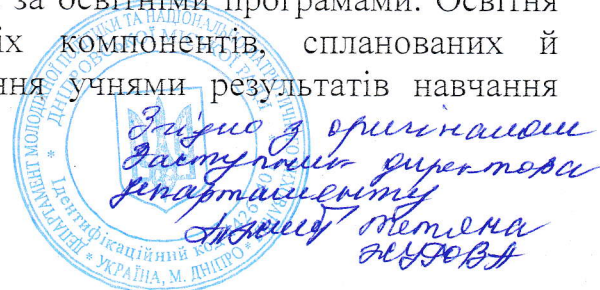 за освітніми програмами. Освітня
іх компонентів, спланованих й
ння учнями результатів навчання
Згідно з оригіналом
Заступник директора
департаменту
Тетяна
ЖУРОВА
ДЕПАРТАМЕНТ МОЛОДІЖНОЇ ПОЛІТИКИ ТА НАЦІОНАЛЬНО-ПАТРІОТИЧНОГО
ДНІПРОВСЬКОЇ МІСЬКОЇ РАДИ
Ідентифікаційний код
* УКРАЇНА, М. ДНІПРО *